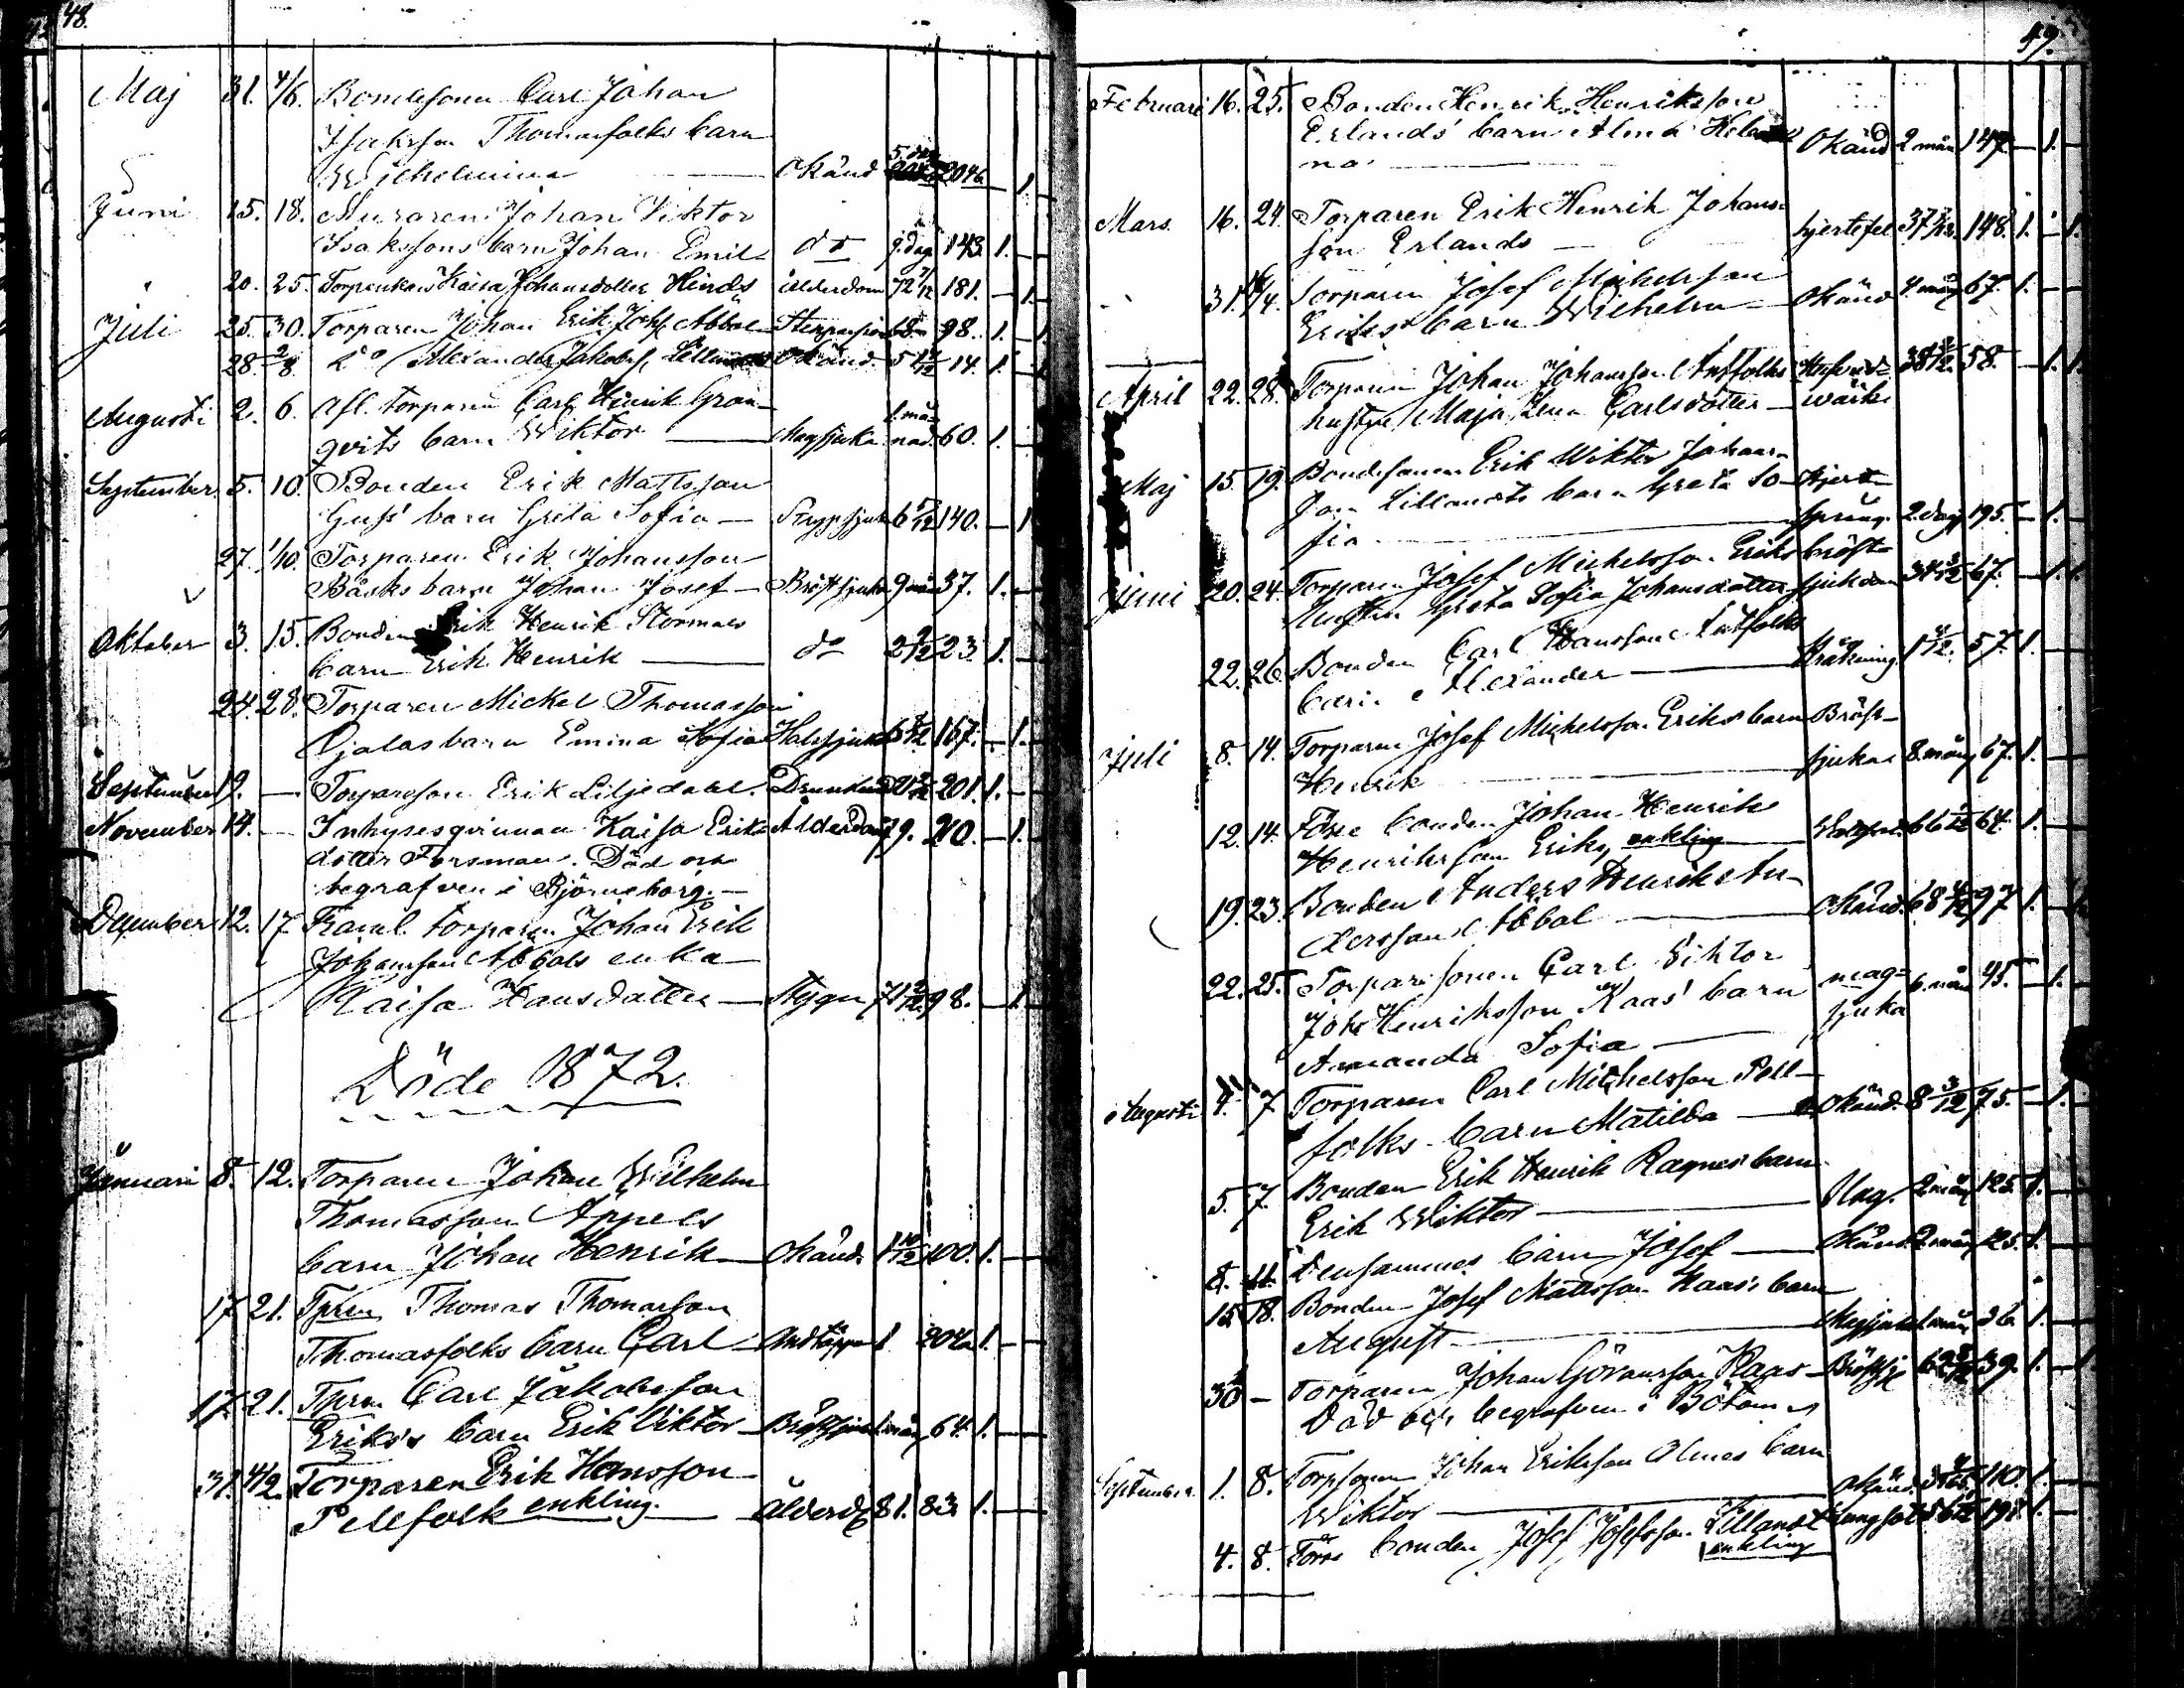 48.
Maj 31. 4/6. Bondesonen Carl Johan
Isaksson Thomasfolks barn
Wilhelmina — okänd 5 dag 204a — 1.
Juni 15. 18. Muraren Johan Viktor
Isakssons barn Johan Emil do 9. dag. 143. 1. —
20. 25. Torpenkan Kaisa Johansdotter Hinds ålderdom 72 181. — 1.
Juli 25. 30. Torparen Johan Erik Johs. Abbal 98. 1. —
28. 2/8 Do Alexander Jakobs. Okänd. 5 14. 1. —
Augusti 2. 6. Afl. torparen Carl Henrik Gran-
qvists barn Wiktor — Magsjuka 1. månad. 60. 1. —
September 5. 10. Bonden Erik Mattsson
Ljuss' barn Greta Sofia — Strypsjuka 6 5/12 140. — 1.
27. 1/10. Torparen Erik Johansson
Båsks barn Johan Josef — Bröstsjuka 9 mån 37. 1. —
Oktober 3. 15. Bonden Erik Henrik Stormans
barn Erik Henrik — do 2 9/12 23. 1. —
24. 28. Torparen Mickel Thomasson
Ojalas barn Emma Sofia Halssjuka 167. — 1.
September 19. — Torparson Erik Liljedahl. 201. 1. —
November 14. — Inhysesqvinnan Kaisa Eriks-
dotter Forsman. Död och
begrafven i Björneborg. — Ålderdom 79. 210. — 1.
December 12. 17 Framl. torparen Johan Erik
Johansson Abbals enka
Kaisa Hansdotter — Stygn 71 98. — 1.
Döde 1872.
Januari 8. 12. Torparen Johan Wilhelm
Thomasson Äppels
barn Johan Henrik — okänd. 1 10/12 100. 1. —
17 21. Tprn Thomas Thomasson
Thomasfolks barn Carl — Andtäppa 1 204a 1. —
17. 21. Tprn Carl Jakobsson
Eriks's barn Erik Viktor — Bröstsjuka 64. 1. —
31. 4/2. Torparen Erik Hansson
Pellfolk enkling. — ålderd. 81. 83 1. —
49.
Februari 16. 25. Bonden Henrik Henriksson
Erlands' barn Alma Hele-
na — Okänd 2 mån 147. — 1. —
Mars. 16. 24. Torparen Erik Henrik Johans-
son Erlands — hjertefel 37 148. 1. — 1.
31. 4. Torparen Josef Michelsson
Eriks's barn Wilhelm — okänd 4 mån 67. 1. —
April 22. 28. Torparen Johan Johansson Antfolks
hustru Maja Lena Carlsdotter — Hufvud-
wärk 38 58. — 1. 1.
Maj 15. 19. Bondesonen Erik Wiktor Johans-
son Lillandts barn Greta So-
fia — Hjert-
språng. 2. dag 195. — 1. —
Juni 20. 24. Torparen Josef Michelsson Eriks
hustru Greta Sofia Johansdotter bröst-
sjukdom 34 67. — 1. 1.
22. 26. Bonden Carl Hansson Antfolks
barn Alexander — Kräkning. 1 57. 1. —
Juli 8. 14. Torparen Josef Michelsson Eriks barn
Henrik — Bröst-
sjuka 8 mån 67. 1. —
12. 14. Förre bonden Johan Henrik
Henriksson Eriks, enkling 66 64. 1. —
19. 23. Bonden Anders Henrik An-
dersson Abbal — okänd. 68 97 1. —
22. 25. Torparesonen Carl Viktor
Joh. Henriksson Kaas' barn
Amanda Sofia — mag-
sjuka 6. mån 45. — 1. —
Augusti 4. 7 Torparen Carl Michelsson Pell-
folks barn Matilda — okänd. 8 3/12 75. — 1. —
5. 7. Bonden Erik Henrik Ragnes barn
Erik Wiktor — Mag. 2 mån 125. 1. —
8. 11. Densammes barn Josef — Okänd. 2 mån 125. 1. —
15 18. Bonden Josef Mattsson Kaas's barn
August — Magsjuka 1 mån 36. 1. —
30 — Torparen Johan Göransson Kaas —
Död och begrafven i Bötom Bröstsj. 62 39. 1. — 1
September. 1. 8. Torpsonen Johan Eriksson Olmes barn
Wiktor — okänd. 110. 1. —
4. 8. Förre bonden Josef Josefsson Lillandt
enkling Lungsot 56 198. 1. —